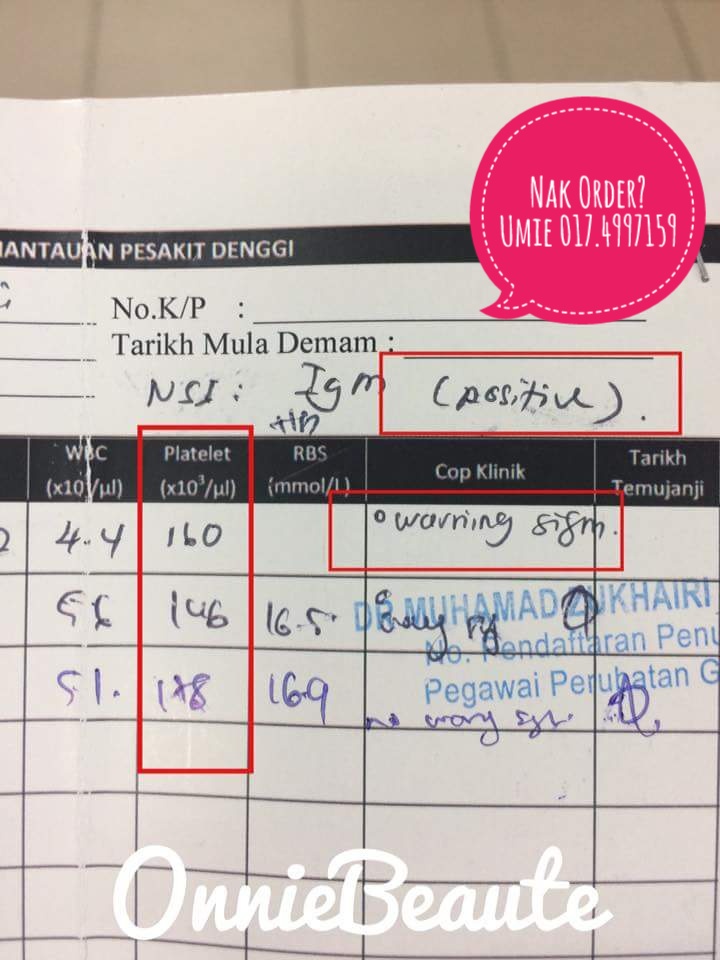 NAK ORDER?
UMIE 017.4997159
ANTAUAN PESAKIT DENGGI
No.K/P :
Tarikh Mula Demam :
NS1 : Igm (positive).
WBC (x10³/µl) Platelet (x10³/µl) RBS (mmol/L) Cop Klinik Tarikh Temujanji
4.4 160 warning sign.
146 16.5
DR MUHAMAD ZUKHAIRI
No. Pendaftaran Penu
51. 16.9
Pegawai Perubatan G
OnnieBeaute